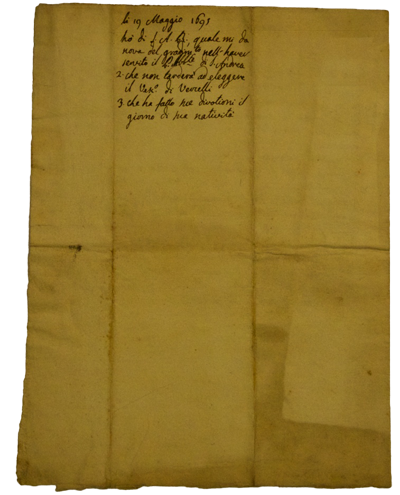 li 19 Maggio 1693
di S. A. R. quale mi da
nova del nell'haver
servito il di S. Andrea
2. che non tarderà ad eleggere
il Vesc.º di Vercelli
3 che ha fatto sue divotioni il
giorno di sua natività